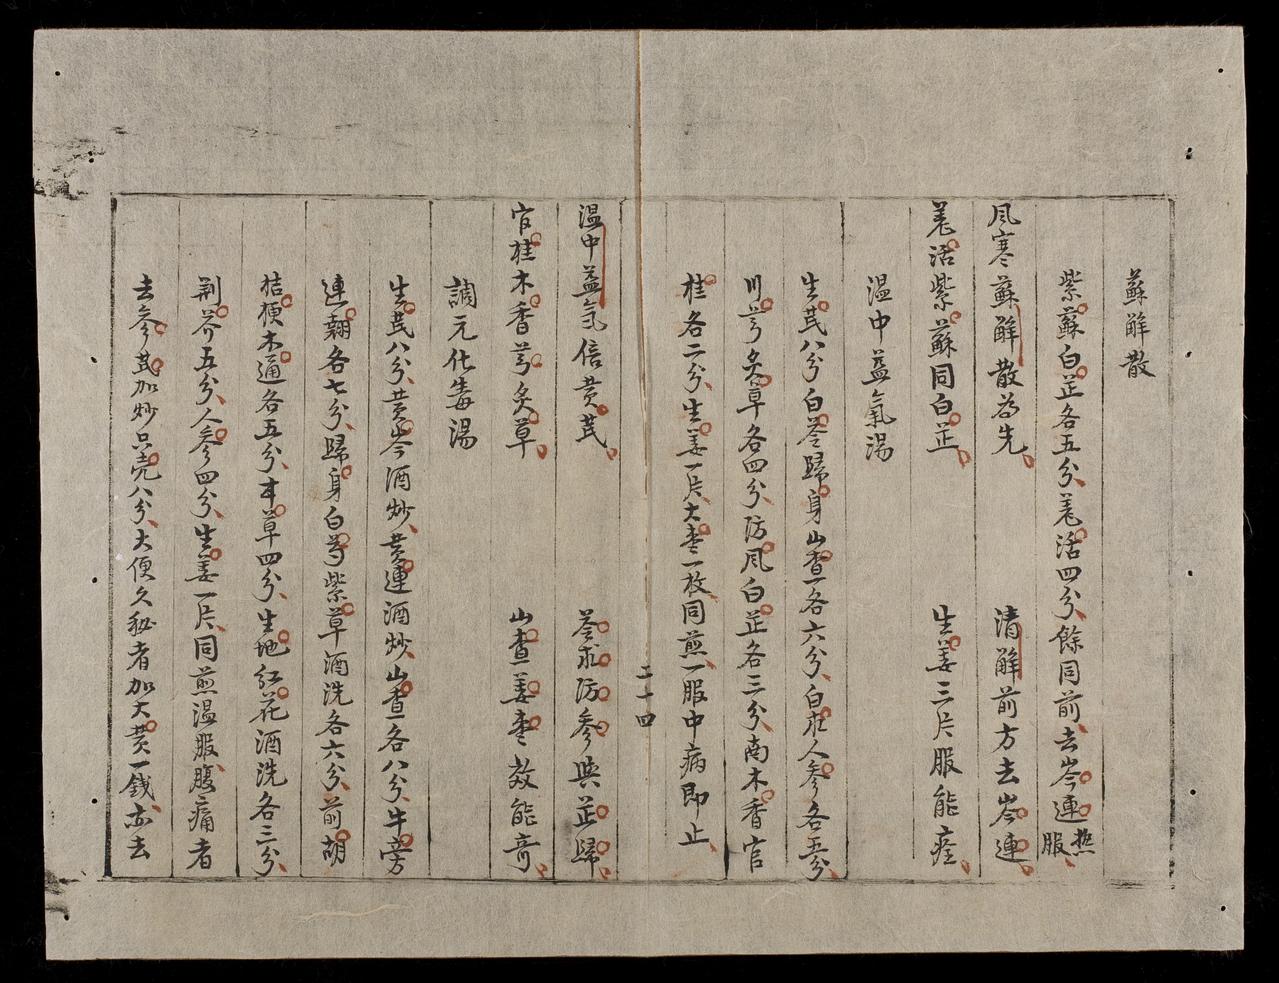 蘇解散
紫蘇白芷各五分羗活四分餘同前去岑連熱服
風寒蘇解散為先 清解前方去岑連
羗活紫蘇同白芷 生姜三片服能痊
温中益氣湯
生茋八分白苓歸身山查各六分白朮人參各五分
川芎炙草各四分防風白芷各三分南木香官
桂各二分生姜一片大棗一枚同煎服中病即止
二十四
温中益氣倍黄茋 苓朮防參與芷歸
官桂木香芎炙草 山查姜棗效能奇
調元化毒湯
生茋八分黄岑酒炒黄連酒炒山查各八分牛旁
連翹各七分歸身白芍紫草酒洗各六分前胡
桔梗木通各五分甘草四分生地紅花酒洗各三分
荆芥五分人參四分生姜一片同煎温服腹痛者
去參茋加炒只壳八分大便久秘者加大黄一錢亦去